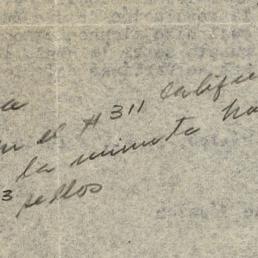 a
n el #311 Califi
la minuta ha
3 sellos